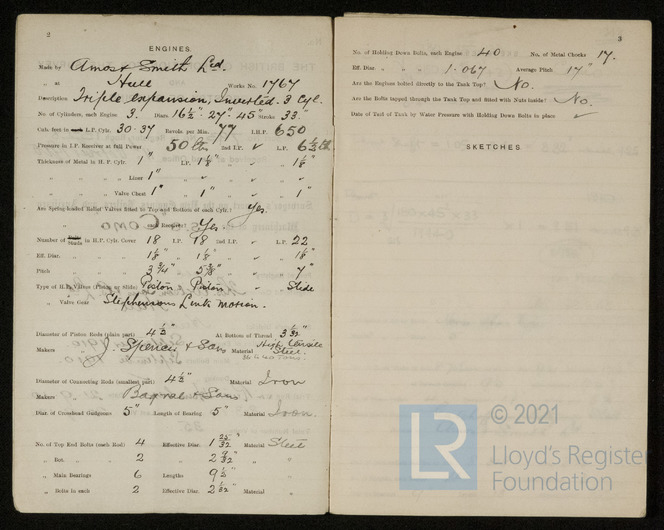 2
ENGINES.
Made by Amos & Smith Ltd.
„ at Hull Works No. 1767
Description Triple expansion, Inverted. 3 Cyl.
No. of Cylinders, each Engine 3. Diars. 16½"- 27"- 45" Stroke 33"
Cub. feet in L.P. Cylr. 30.37 Revols. per Min. 77 I.H.P. 650
Pressure in I.P. Receiver at full Power 50 lbs 2nd I.P. ✓ L.P. 6½
Thickness of Metal in H.P. Cylr. 1" I.P. 1⅛" „ ✓ „ 1⅛"
„ „ „ Liner 1" „ ✓ „ ✓ „ ✓
„ „ Valve Chest 1" „ 1" „ ✓ „ 1"
Are Spring-loaded Relief Valves fitted to Top and Bottom of each Cylr.? Yes.
„ „ „ each Receiver? Yes.
Number of Studs in H.P. Cylr. Cover 18 I.P. 18 2nd I.P. ✓ L.P. 22
Eff. Diar. „ „ „ 1⅛" „ 1⅛" „ „ 1⅛"
Pitch „ „ „ 3¾" „ 5⅜" „ „ 7"
Type of H.P. Valves (Piston or Slide) Piston Piston ✓ Slide
„ Valve Gear Stephensons Link motion.
Diameter of Piston Rods (plain part) 4½" At Bottom of Thread 3 3/32"
Makers J. Spencer & Sons Material High tensile Steel.
Diameter of Connecting Rods (smallest part) 4½" Material Iron
Makers & Sons
Diar. of Crosshead Gudgeons 5" Length of Bearing 5" Material Iron.
No. of Top End Bolts (each Rod) 4 Effective Diar. 1 25/32" Material Steel
„ Bot. „ „ 2 „ 2 9/32" „ „
„ Main Bearings 6 Lengths 9½"
„ Bolts in each 2 Effective Diar. 2 1/32" Material „
3
No. of Holding Down Bolts, each Engine 40 No. of Metal Chocks 17.
Eff. Diar. „ „ „ 1.067 Average Pitch 17"
Are the Engines bolted directly to the Tank Top? No.
Are the Bolts tapped through the Tank Top and fitted with Nuts inside? No.
Date of Test of Tank by Water Pressure with Holding Down Bolts in place ✓
SKETCHES
LR
© 2021
Lloyd's Register
Foundation